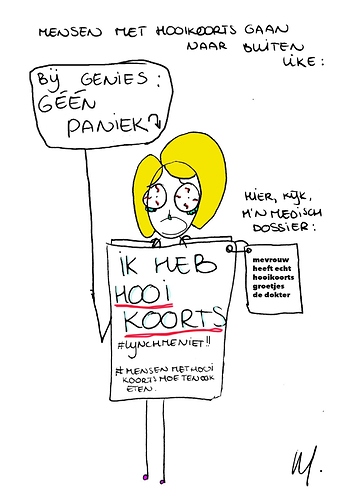 MENSEN MET HOOIKOORTS GAAN
NAAR BUITEN
LIKE:
BIJ GENIES:
GÉÉN
PANIEK
HIER, KIJK,
M'N MEDISCH
DOSSIER:
mevrouw
heeft echt
hooikoorts
groetjes
de dokter
IK HEB
HOOI
KOORTS
#LYNCHMENIET!!
#MENSEN MET HOOI
KOORTS MOETEN OOK
ETEN.
M.